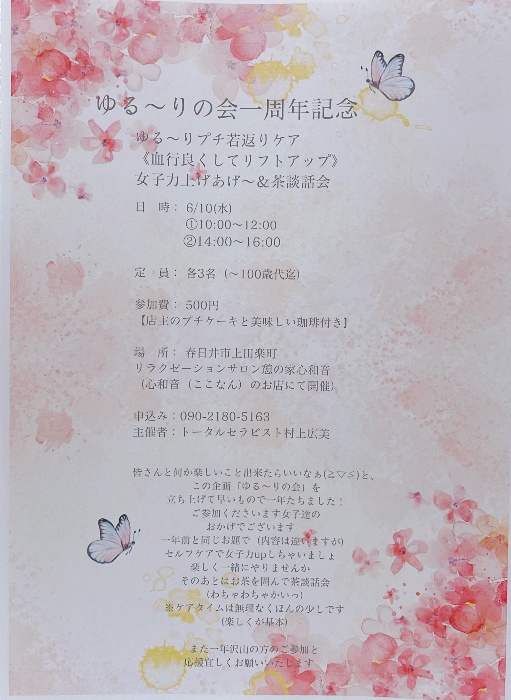 ゆる～りの会一周年記念
ゆる～りプチ若返りケア
《血行良くしてリフトアップ》
女子力上げあげ～＆茶談話会
日　時： 6/10(水)
①10:00～12:00
②14:00～16:00
定　員： 各3名（～100歳代迄）
参加費： 500円
【店主のプチケーキと美味しい珈琲付き】
場　所： 春日井市上田楽町
リラクゼーションサロン憩の家心和音
（心和音（ここなん）のお店にて開催）
申込み：090-2180-5163
主催者：トータルセラピスト村上広美
皆さんと何か楽しいこと出来たらいいなぁ(≧▽≦)と、
この企画「ゆる～りの会」を
立ち上げて早いもので一年たちました！
ご参加くださいます女子達の
おかげでございます
一年前と同じお題で（内容は違いますが）
セルフケアで女子力upしちゃいましょ
楽しく一緒にやりませんか
そのあとはお茶を囲んで茶談話会
（わちゃわちゃかいっ）
※ケアタイムは無理なくほんの少しです
（楽しくが基本）
また一年沢山の方のご参加と
応援宜しくお願いいたします